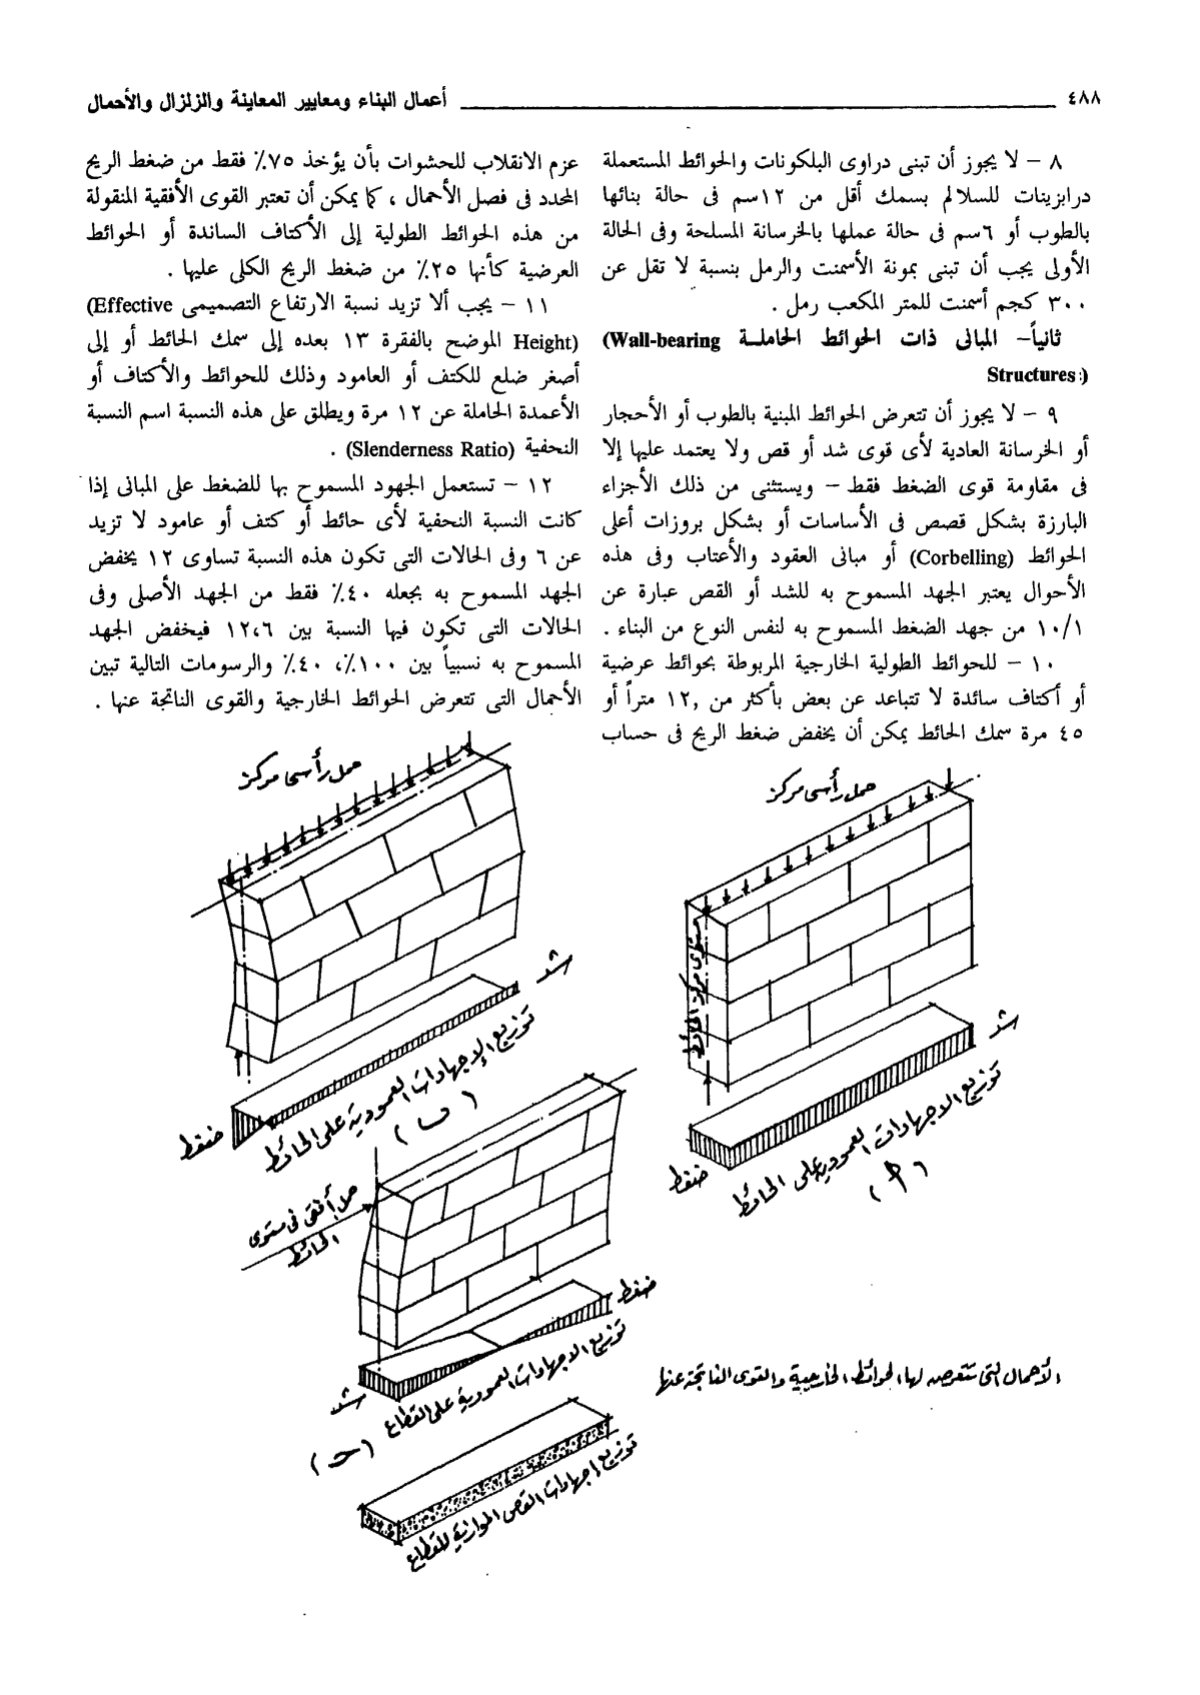 ٤٨٨ أعمال البناء ومعايير المعاينة والزلزال والأحمال
٨ – لا يجوز أن تبنى دراوى البلكونات والحوائط المستعملة
درابزينات للسلالم بسمك أقل من ١٢سم فى حالة بنائها
بالطوب أو ٦سم فى حالة عملها بالخرسانة المسلحة وفى الحالة
الأولى يجب أن تبنى بمونة الأسمنت والرمل بنسبة لا تقل عن
٣٠٠ كجم أسمنت للمتر المكعب رمل .
ثانياً– المبانى ذات الحوائط الحاملة (Wall-bearing
Structures:)
٩ – لا يجوز أن تتعرض الحوائط المبنية بالطوب أو الأحجار
أو الخرسانة العادية لأى قوى شد أو قص ولا يعتمد عليها إلا
فى مقاومة قوى الضغط فقط – ويستثنى من ذلك الأجزاء
البارزة بشكل قصص فى الأساسات أو بشكل بروزات أعلى
الحوائط (Corbelling) أو مبانى العقود والأعتاب وفى هذه
الأحوال يعتبر الجهد المسموح به للشد أو القص عبارة عن
١٠/١ من جهد الضغط المسموح به لنفس النوع من البناء .
١٠ – للحوائط الطولية الخارجية المربوطة بحوائط عرضية
أو أكتاف سائدة لا تتباعد عن بعض بأكثر من ١٢, متراً أو
٤٥ مرة سمك الحائط يمكن أن يخفض ضغط الريح فى حساب
عزم الانقلاب للحشوات بأن يؤخذ ٧٥٪ فقط من ضغط الريح
المحدد فى فصل الأحمال ، كما يمكن أن تعتبر القوى الأفقية المنقولة
من هذه الحوائط الطولية إلى الأكتاف الساندة أو الحوائط
العرضية كأنها ٢٥٪ من ضغط الريح الكلى عليها .
١١ – يجب ألا تزيد نسبة الارتفاع التصميمى (Effective
Height) الموضح بالفقرة ١٣ بعده إلى سمك الحائط أو إلى
أصغر ضلع للكتف أو العامود وذلك للحوائط والأكتاف أو
الأعمدة الحاملة عن ١٢ مرة ويطلق على هذه النسبة اسم النسبة
النحفية (Slenderness Ratio) .
١٢ – تستعمل الجهود المسموح بها للضغط على المبانى إذا
كانت النسبة النحفية لأى حائط أو كتف أو عامود لا تزيد
عن ٦ وفى الحالات التى تكون هذه النسبة تساوى ١٢ يخفض
الجهد المسموح به بجعله ٤٠٪ فقط من الجهد الأصلى وفى
الحالات التى تكون فيها النسبة بين ١٢،٦ فيخفض الجهد
المسموح به نسبياً بين ١٠٠٪، ٤٠٪ والرسومات التالية تبين
الأحمال التى تتعرض الحوائط الخارجية والقوى الناتجة عنها .
حمل رأسى مركز
مستوى مركز الحائط
شد
ضغط
توزيع الاجهادات العمودية على الحائط
(أ)
حمل رأسى مركز
شد
ضغط
توزيع الإجهادات العمودية على الحائط
(ب)
حمل أفقى فى مستوى
الحائط
ضغط
شد
توزيع الاجهادات العمودية على القطاع
(حـ)
توزيع اجهادات القص الموازية للقطاع
الأحمال التى تتعرض لها الحوائط الخارجية والقوى الناتجة عنها